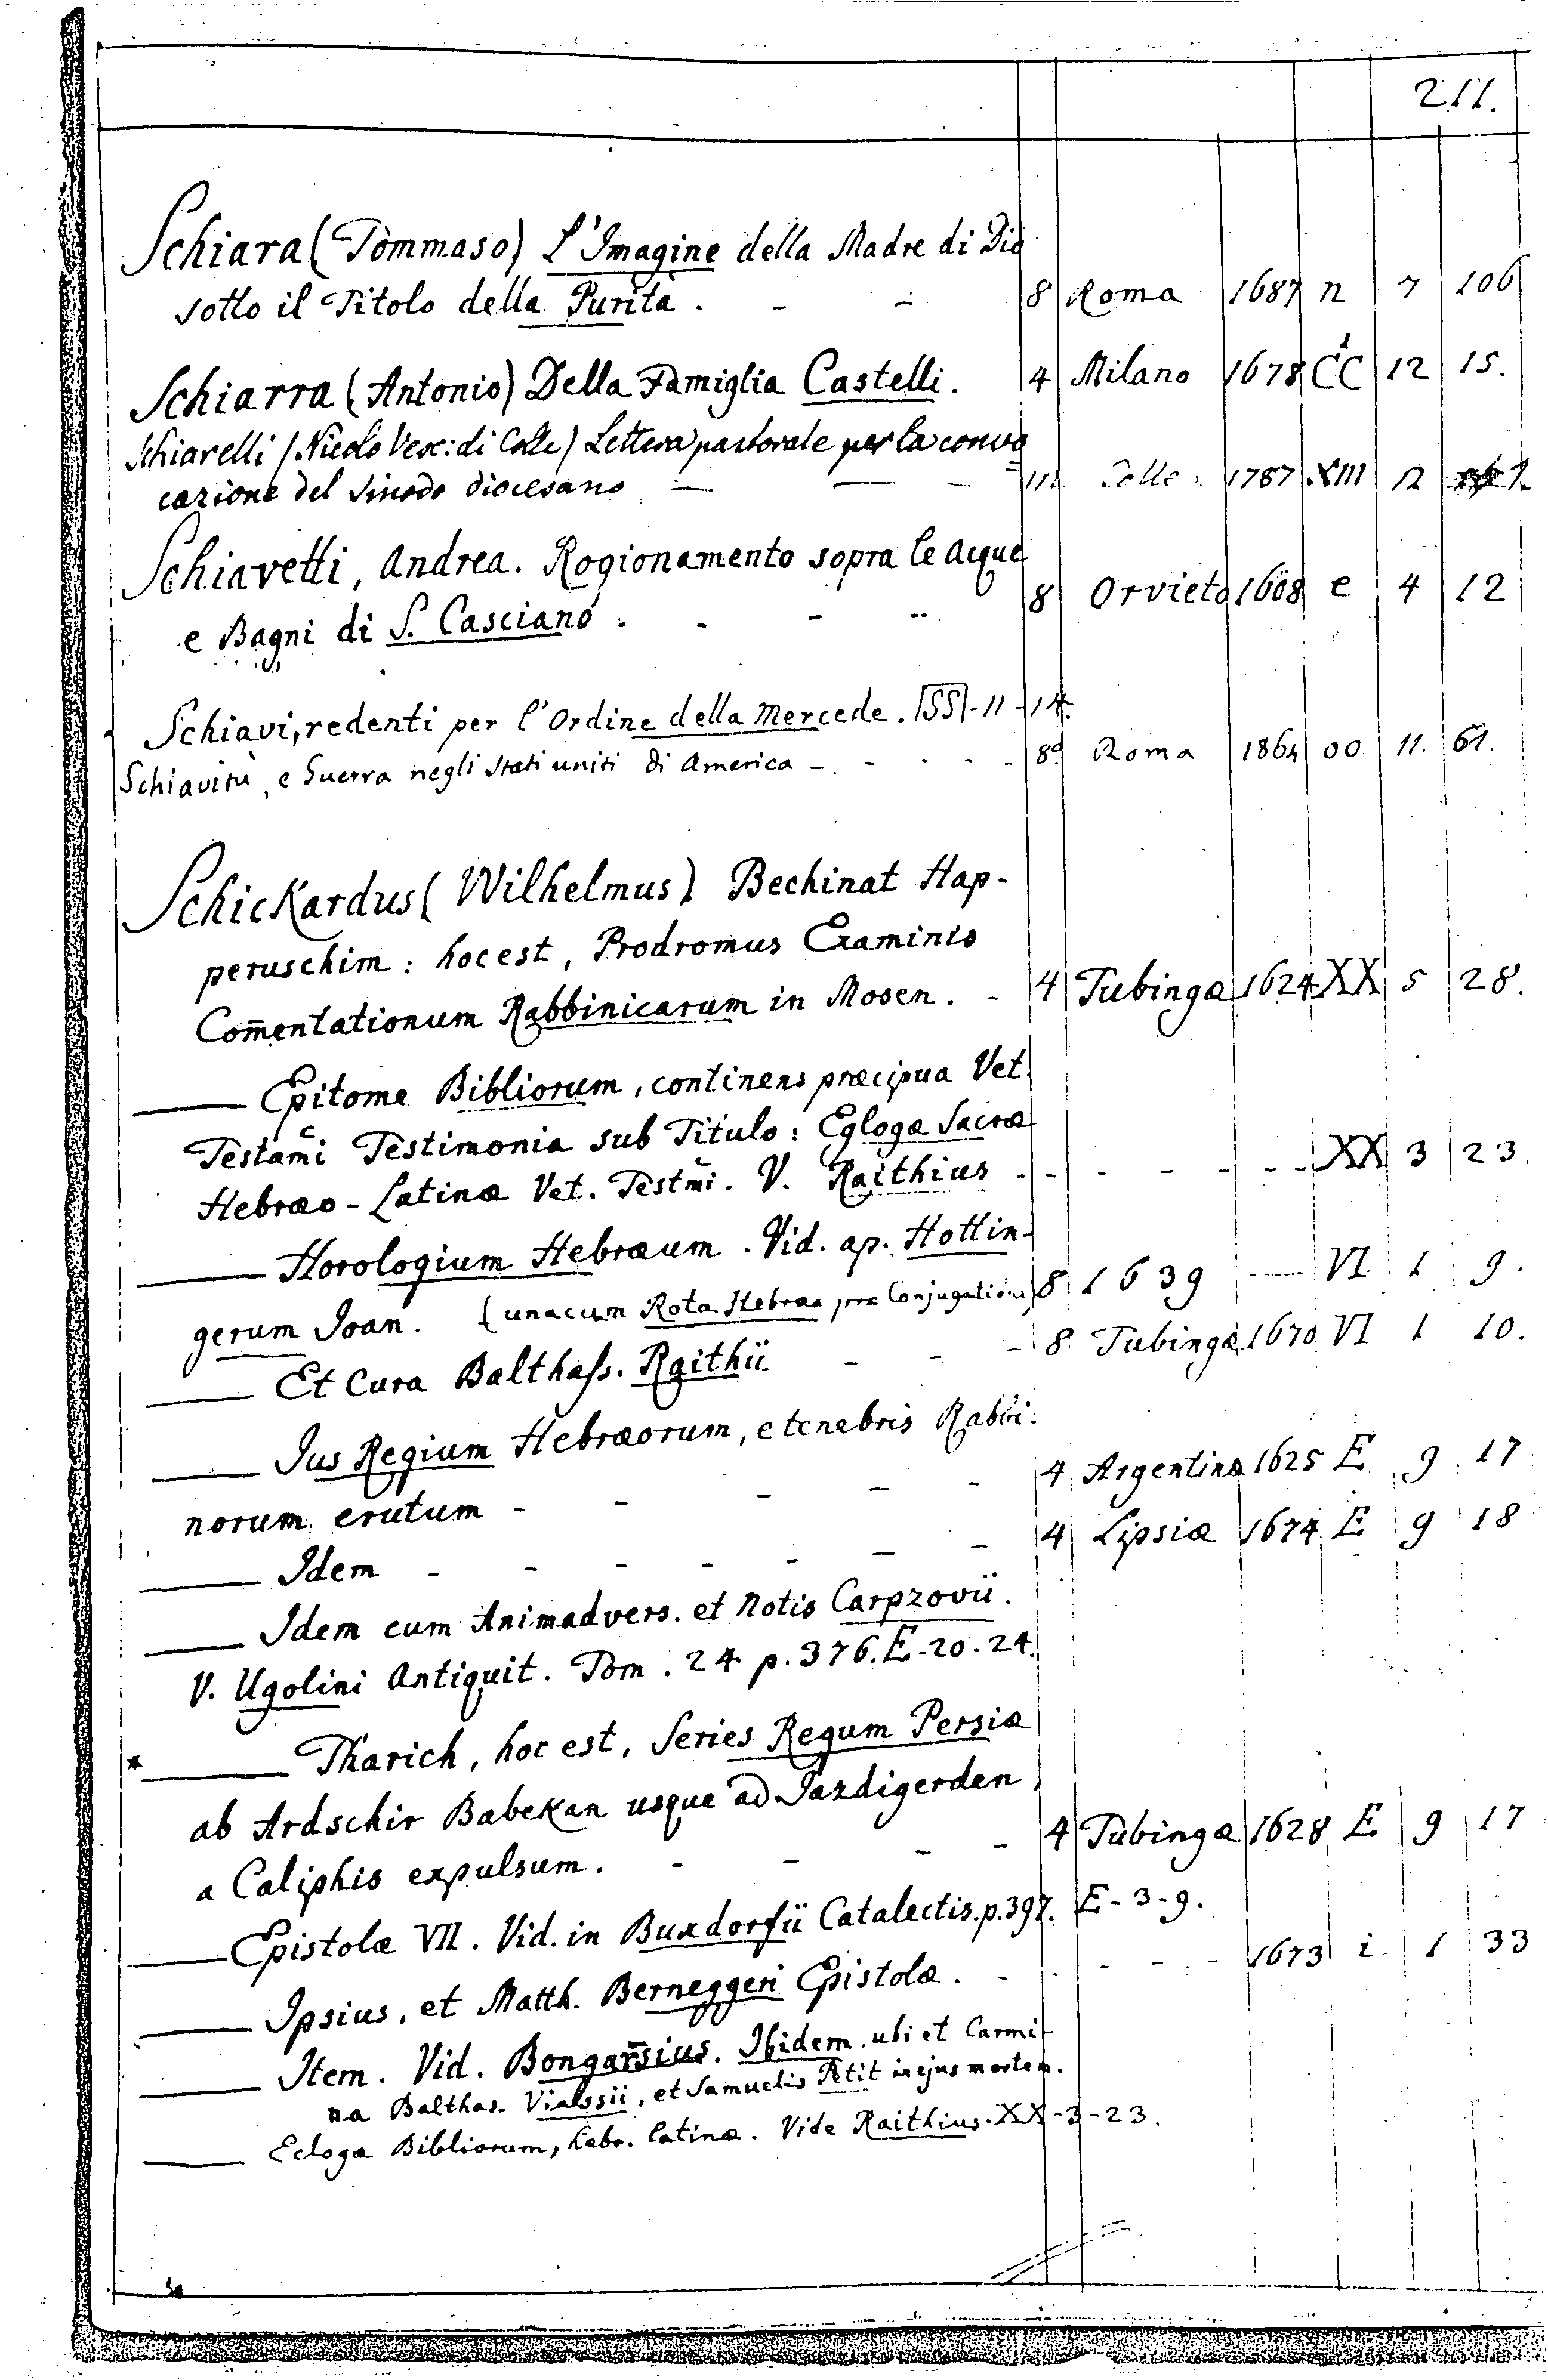 211.
Schiara (Tommaso) L'Imagine della Madre di Dio
sotto il Titolo della Purità . - - 8 Roma 1687 n 7 106
Schiarra (Antonio) Della Famiglia Castelli. 4 Milano 1678 CC 12 15.
Schiarelli (Nicolò Vesc: di Colle) Lettera pastorale per la convo
cazione del Sinodo diocesano — — — Colle 1787 XIII 12
Schiavetti, Andrea. Rogionamento sopra le acque
e Bagni di S. Casciano . - - - 8 Orvieto 1608 e 4 12
Schiavi, redenti per l'Ordine della Mercede. SS - 11 - 14.
Schiavitù, e Guerra negli Stati uniti di America - - - - - 8º Roma 1864 00 11. 61.
Schickardus (Wilhelmus) Bechinat Hap-
peruschim : hoc est, Prodromus Examinis
Com̄entationum Rabbinicarum in Mosen. - 4 Tubingæ 1624 XX 5 28.
—— Epitome Bibliorum, continens præcipua Vet.
Testam̄i Testimonia sub Titulo : Eglogæ Sacræ
Hebræo-Latinæ Vet. Testm̄i. V. Raithius - - - - - - XX 3 23.
—— Horologium Hebræum . Vid. ap. Hottin-
gerum Joan. (unacum Rota Hebræa pro Conjugationi) 8 1639 — VI 1 9.
—— Et Cura Balthass. Raithii - - - 8 Tubingæ 1670 VI 1 10.
—— Jus Regium Hebræorum, e tenebris Rabbi-
norum erutum - - - - - 4 Argentinæ 1625 E 9 17
—— Idem - - - - - - 4 Lipsiæ 1674 E 9 18
—— Idem cum Animadvers. et Notis Carpzovii.
V. Ugolini Antiquit. Tom . 24 p. 376. E-20.24.
* —— Tharich, hoc est, Series Regum Persiæ
ab Ardschir Babekan usque ad Jazdigerden
a Caliphis expulsum. - - - - 4 Tubingæ 1628 E 9 17
—— Epistolæ VII. Vid. in Buxdorfii Catalectis. p. 397. E-3-9.
—— Ipsius, et Matth. Berneggeri Epistolæ. - - - - - 1673 i. 1 33
—— Item. Vid. Bongarsius. Ibidem. ubi et Carmi-
na Balthas. Vialssii, et Samuelis Petit in ejus mortem.
—— Eclogæ Bibliorum, hebr. latinæ. Vide Raithius. XX-3-23.